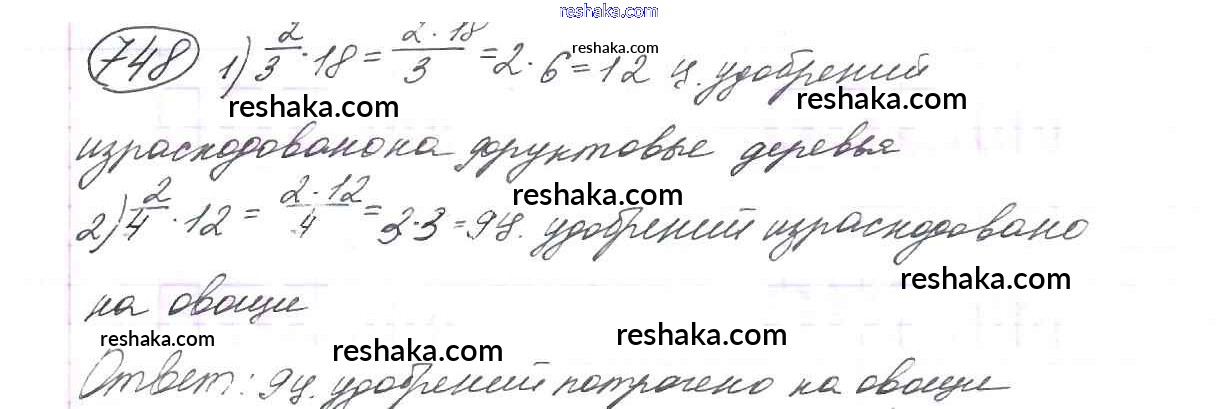 reshaka.com
748 1) 2/3 · 18 = 2 · 18/3 = 2 · 6 = 12 ц. удобрений
reshaka.com
reshaka.com
reshaka.com
израсходовано на фруктовые деревья
reshaka.com
2) 2/4 · 12 = 2 · 12/4 = 3·3 = 9ц. удобрений израсходовано
reshaka.com
на овощи
reshaka.com
reshaka.com
reshaka.com
Ответ: 9ц. удобрений потрачено на овощи